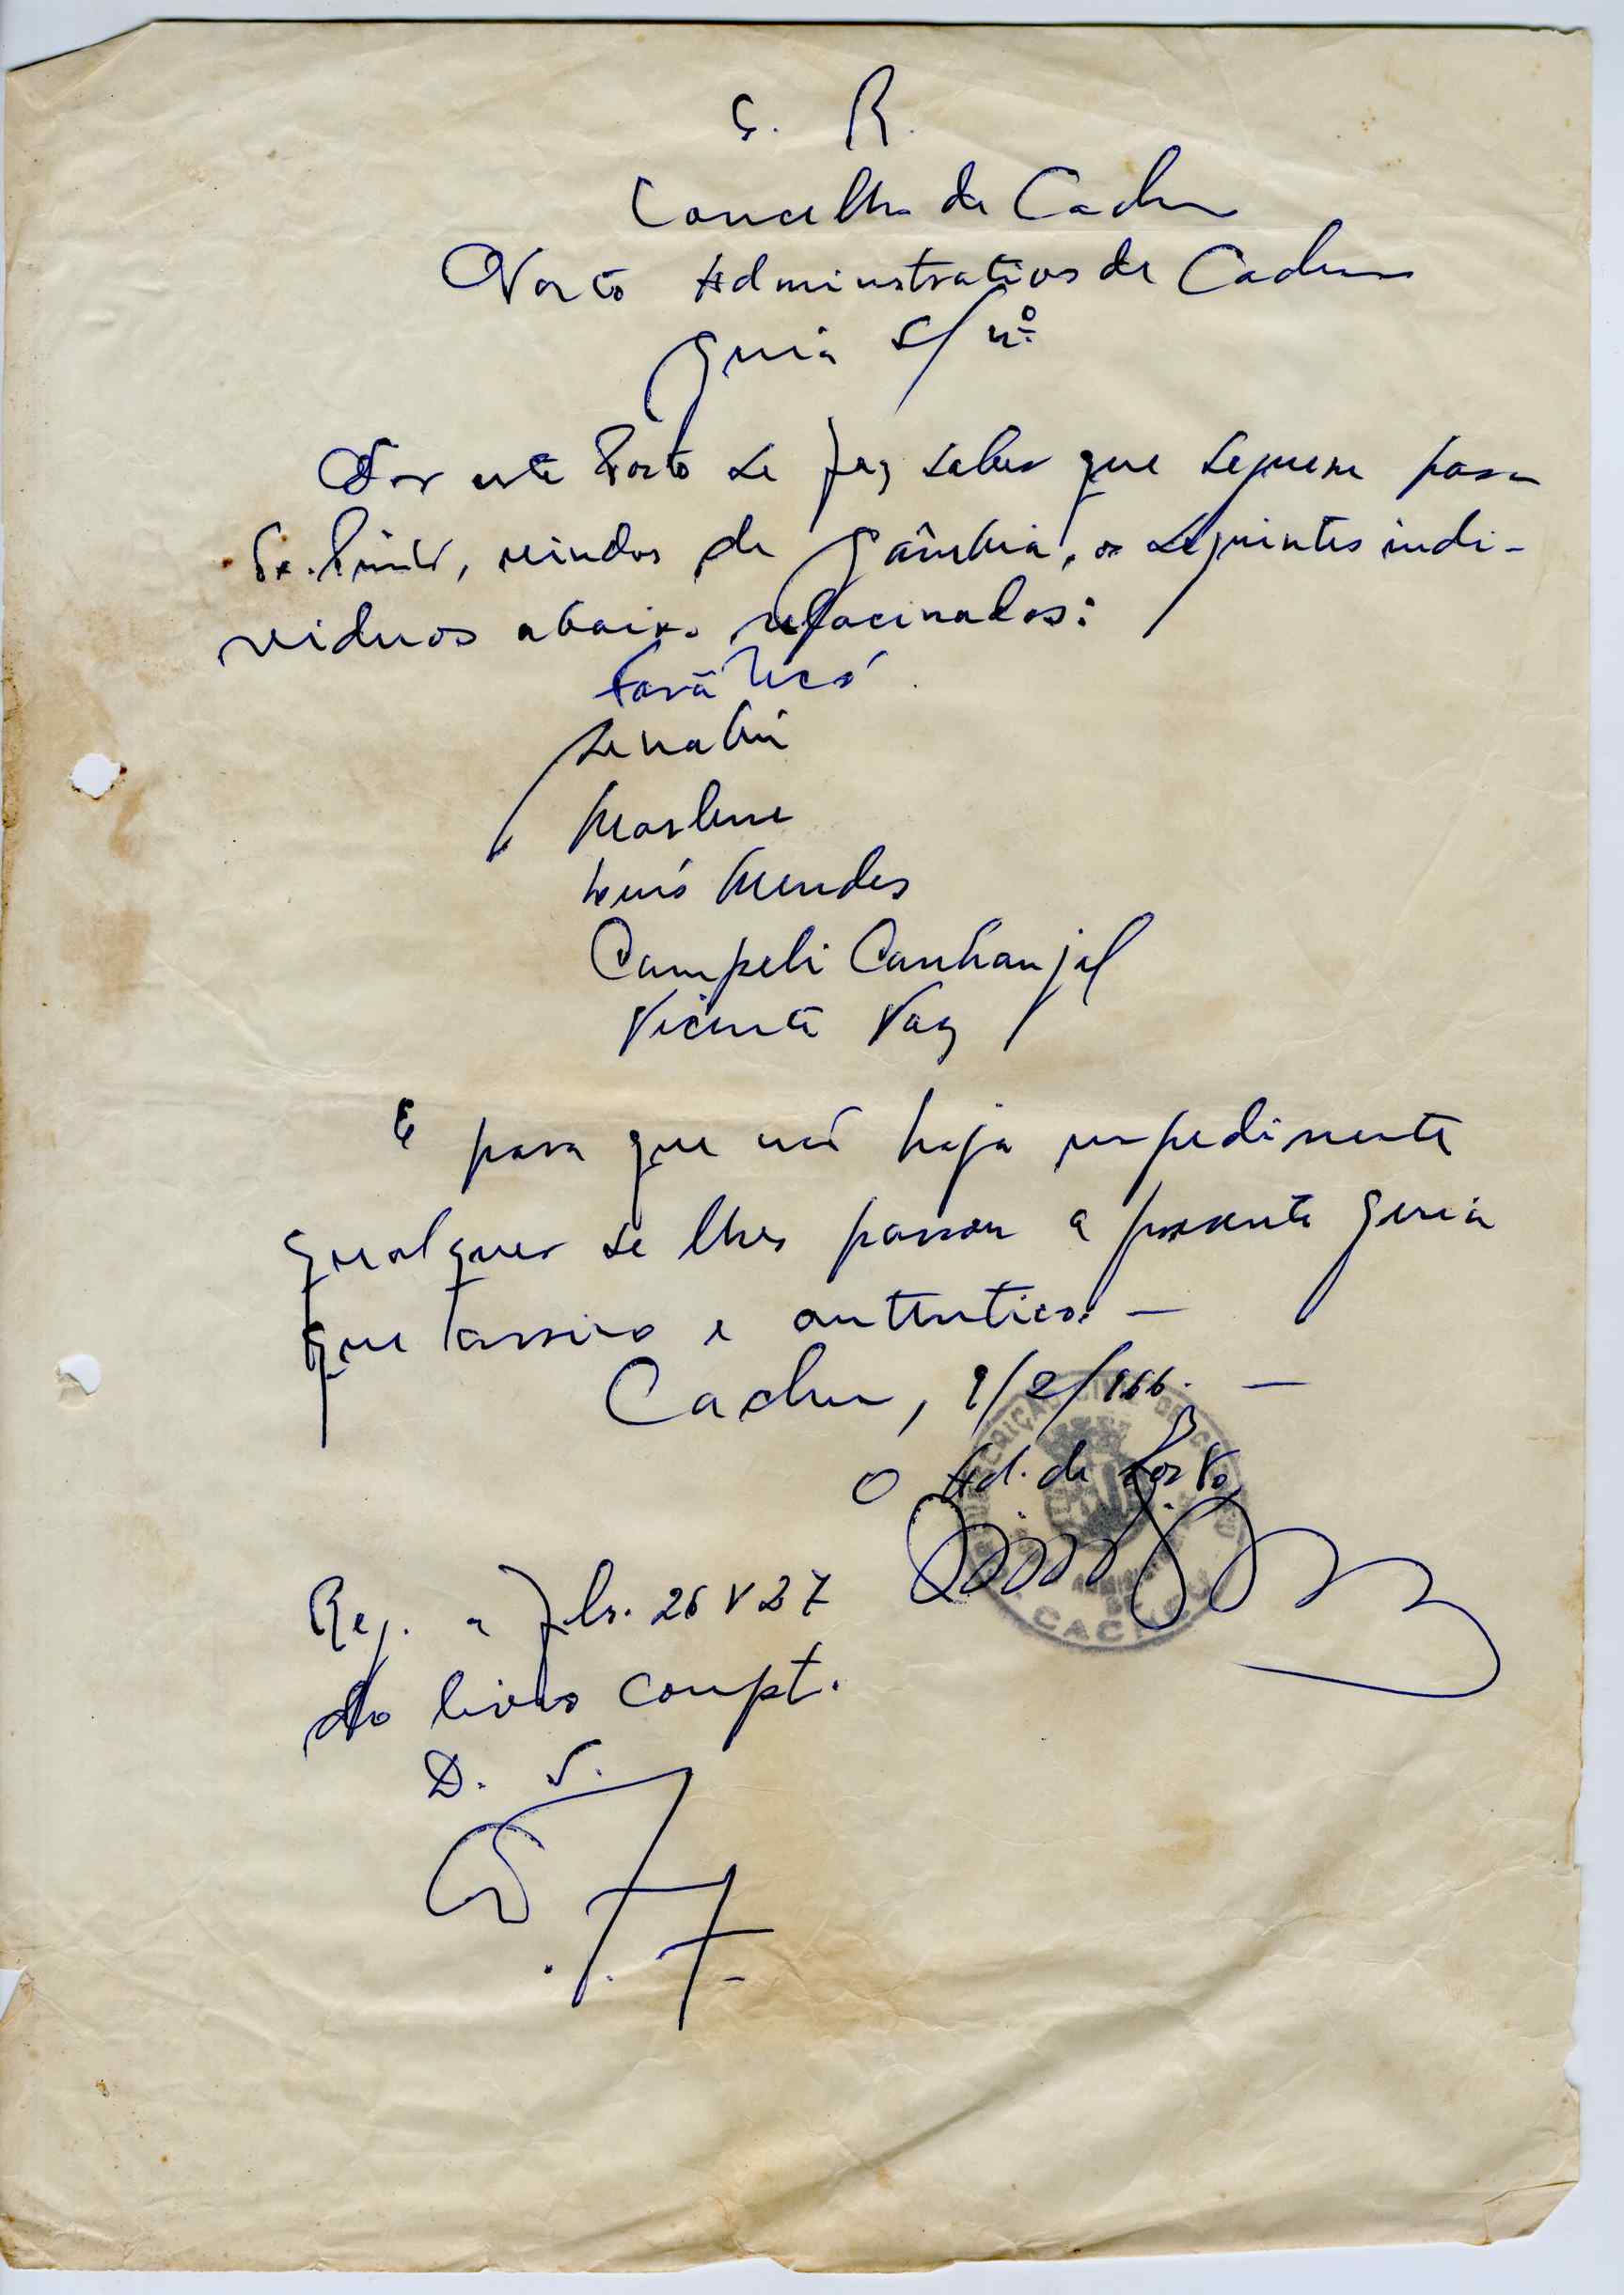 S. R.
Concelho de Cacheu
Posto Administrativo de Cacheu
Guia s/ nº
Por este Posto se faz saber que seguem para
vindos de Gâmbia, os seguintes indi-
viduos abaixo relacinados:
Senabú
Marlene
Luís Mendes
Campeli Canhanjal
Vicente Vaz
E para que não haja impedimento
qualquer se lhes passou a presente guia
que assino e autentico. —
Cacheu, 9/2/966. —
O Ad. de Posto,
Reg. a fls. 26 V 27
do livro compt.
CACHEU